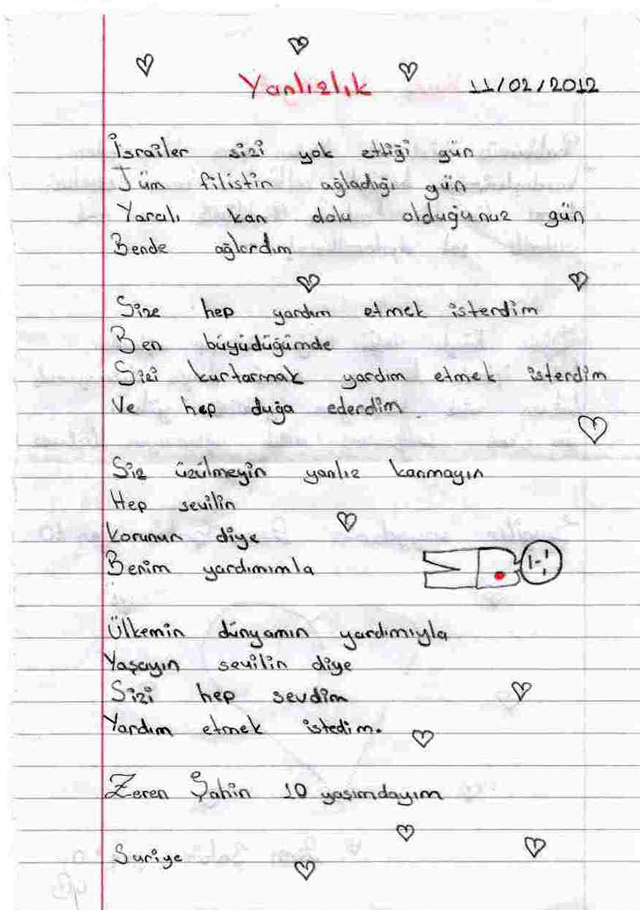 Yanlızlık 11/02/2012
İsrailer sizi yok ettiği gün
Tüm filistin ağladığı gün
Yaralı kan dolu olduğunuz gün
Bende ağlardım
Size hep yardım etmek isterdim
Ben büyüdüğümde
Sizi kurtarmak yardım etmek isterdim
Ve hep duğa ederdim.
Siz üzülmeyin yanlız kanmayın
Hep sevilin
Korunun diye
Benim yardımımla
Ülkemin dünyamın yardımıyla
Yaşayın sevilin diye
Sizi hep sevdim
Yardım etmek istedim.
Zeren Şahin 10 yaşımdayım
Suriye